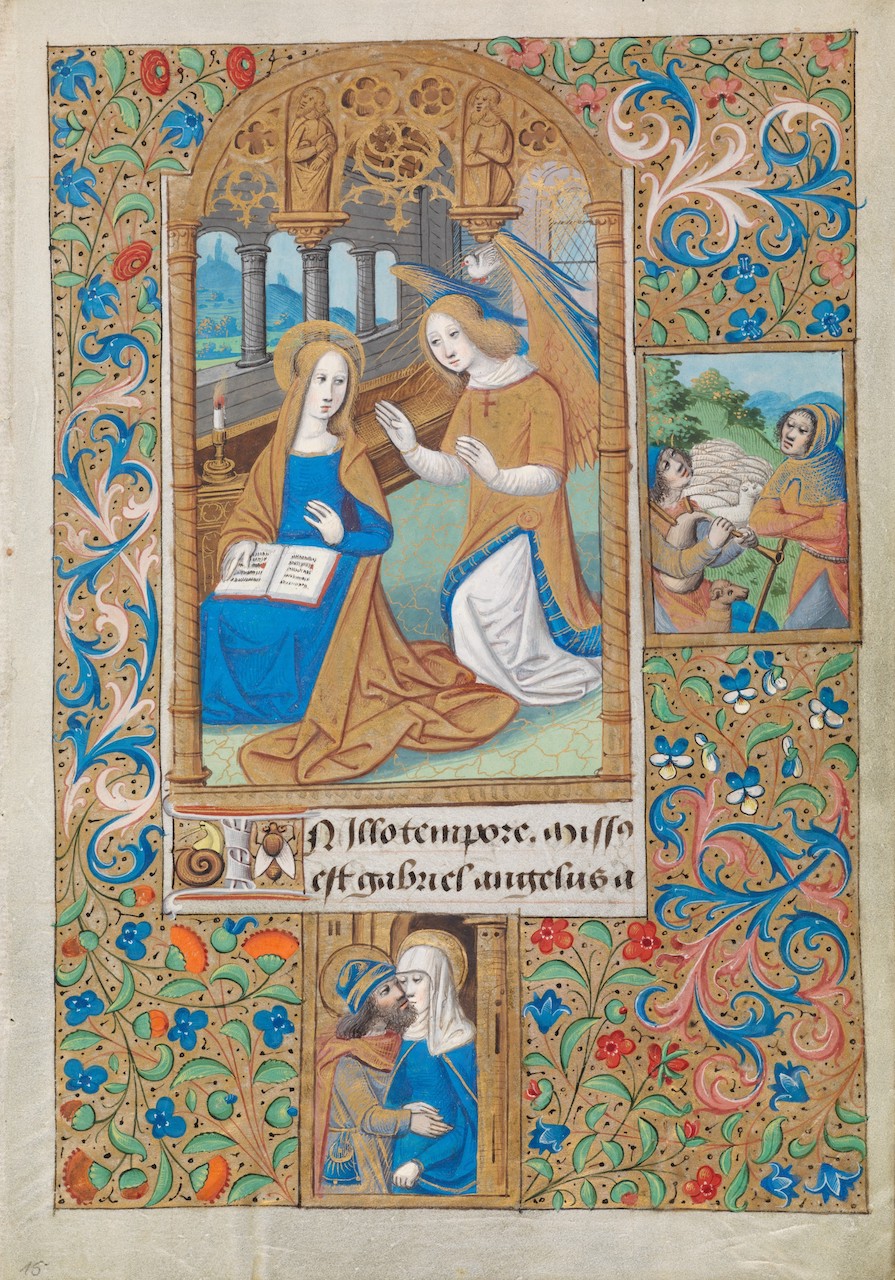 IN Illo tempore. missꝰ
est gabriel angelus a
15